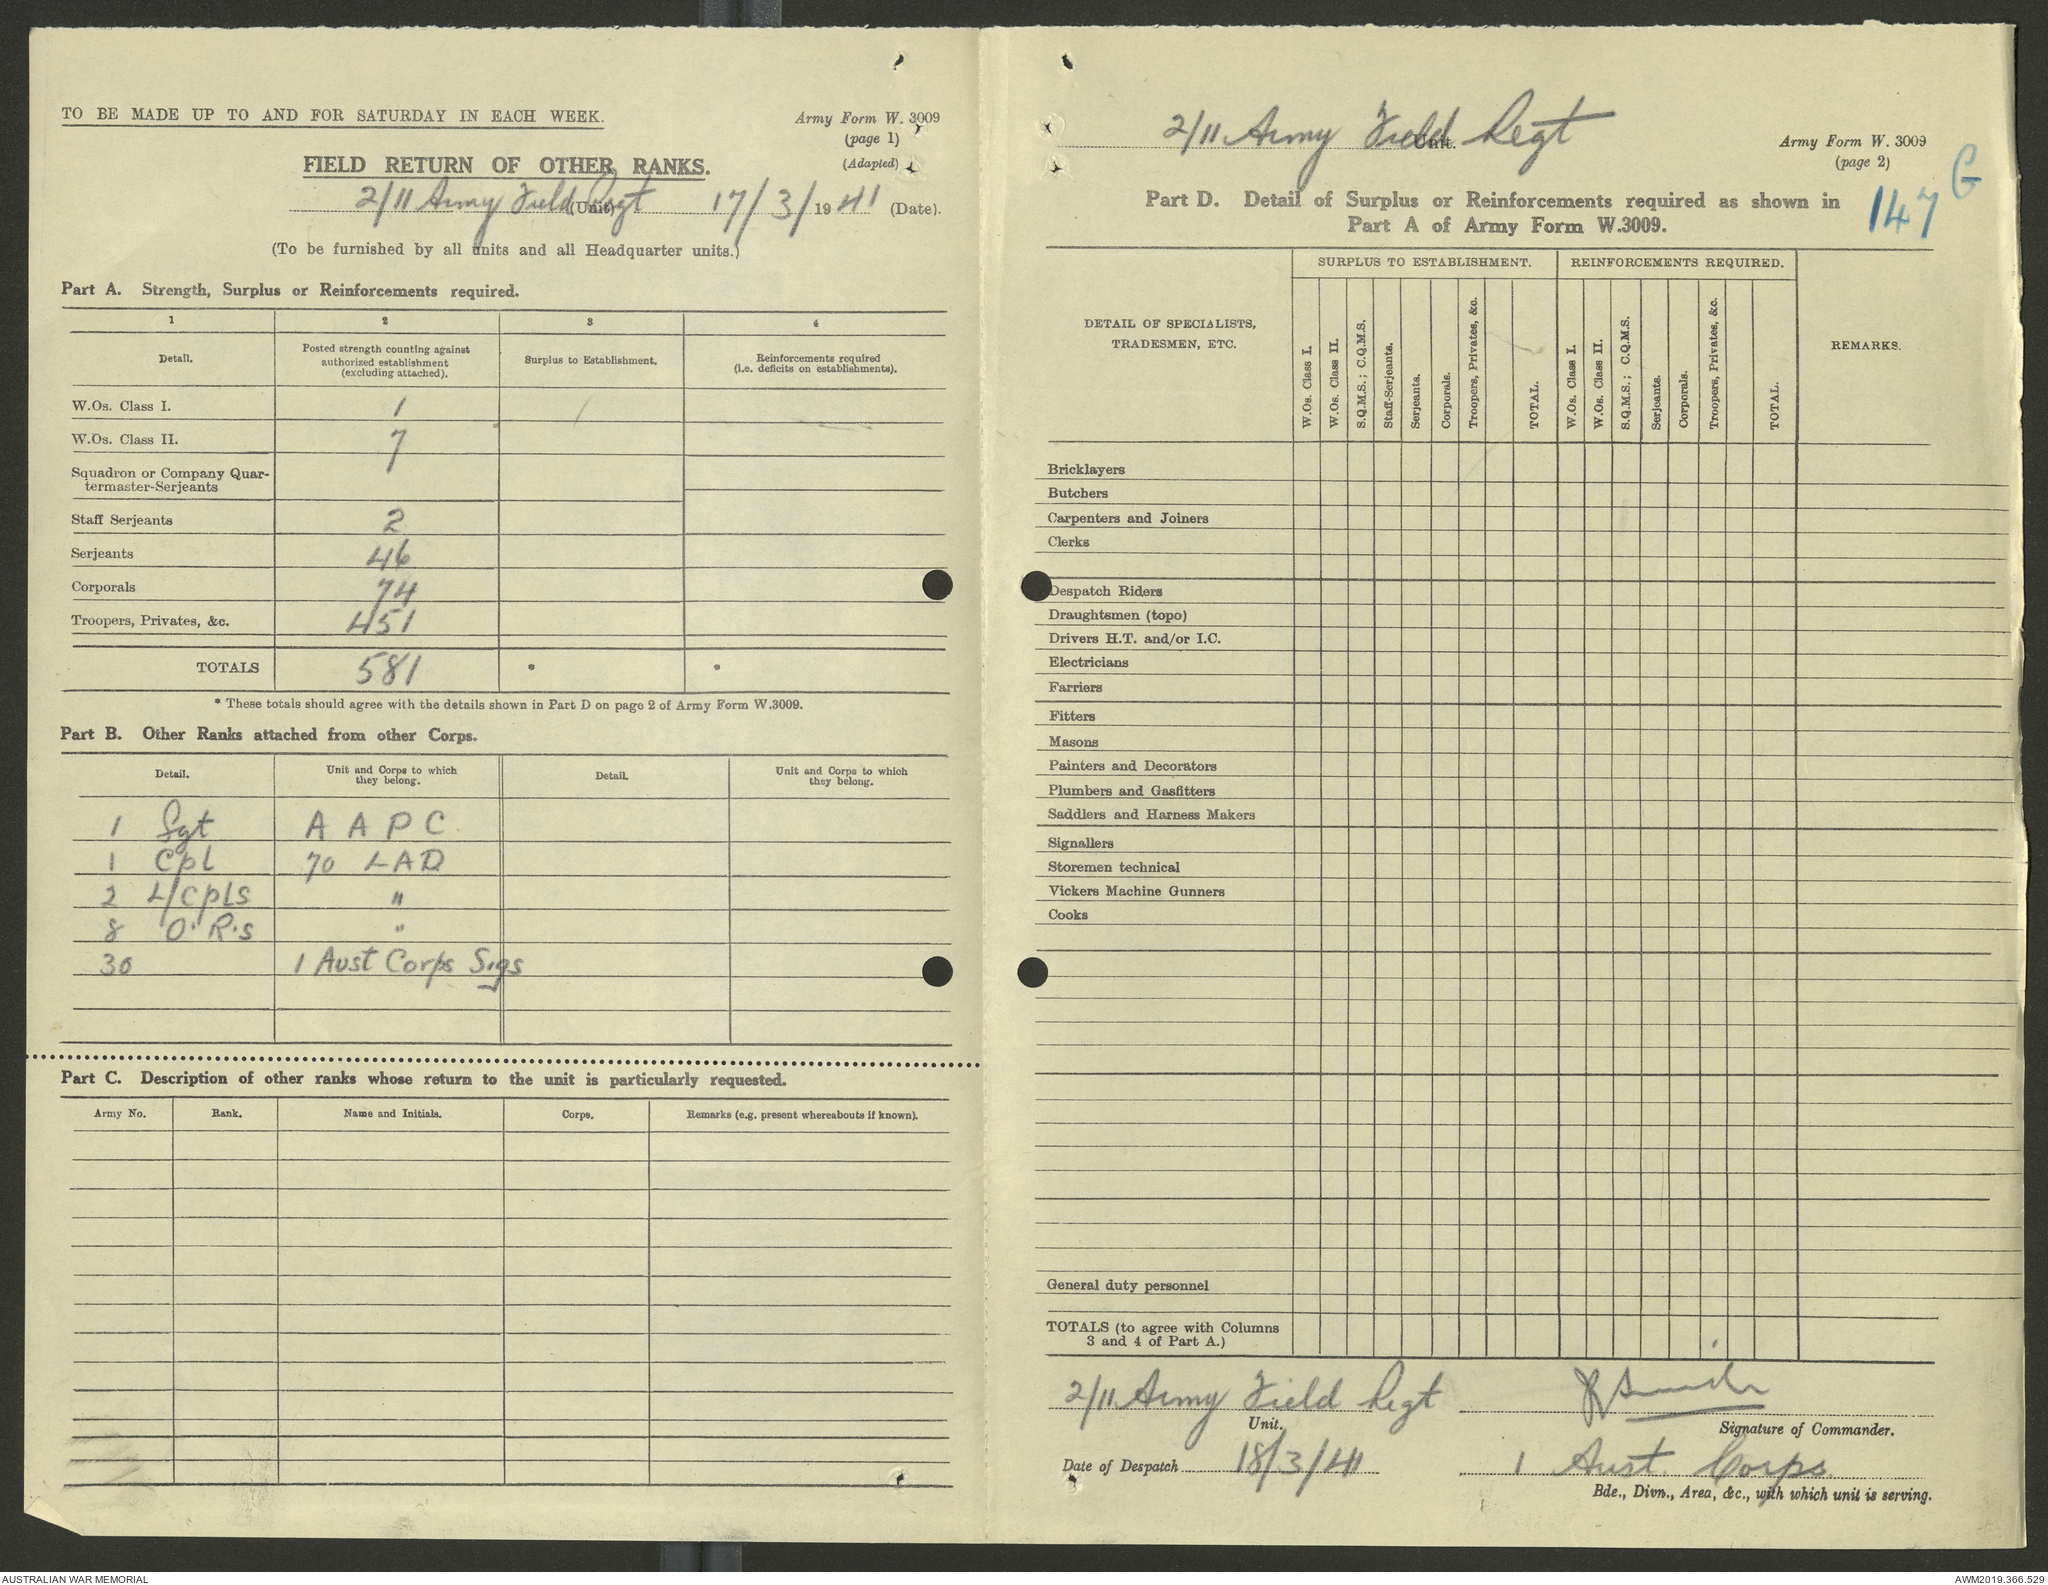 TO BE MADE UP TO AND FOR SATURDAY IN EACH WEEK.
Army Form W. 3009
(page 1)
(Adapted)
FIELD RETURN OF OTHER RANKS.
2/11 Army Field Regt (Unit) 17/3/1941 (Date).
(To be furnished by all units and all Headquarter units.)
Part A. Strength, Surplus or Reinforcements required.
1 2 3 4
Detail. Posted strength counting against authorized establishment (excluding attached). Surplus to Establishment. Reinforcements required (i.e. deficits on establishments).
W.Os. Class I. 1
W.Os. Class II. 7
Squadron or Company Quar-
termaster-Serjeants
Staff Serjeants 2
Serjeants 46
Corporals 74
Troopers, Privates, &c. 451
TOTALS 581 * *
* These totals should agree with the details shown in Part D on page 2 of Army Form W.3009.
Part B. Other Ranks attached from other Corps.
Detail. Unit and Corps to which they belong. Detail. Unit and Corps to which they belong.
1 Sgt A A P C
1 Cpl 70 LAD
2 L/Cpls "
8 O.R.s "
30 1 Aust Corps Sigs
Part C. Description of other ranks whose return to the unit is particularly requested.
Army No. Rank. Name and Initials. Corps. Remarks (e.g. present whereabouts if known).
2/11 Army Field Regt
Unit.
Army Form W. 3009
(page 2)
147 G
Part D. Detail of Surplus or Reinforcements required as shown in
Part A of Army Form W.3009.
DETAIL OF SPECIALISTS, TRADESMEN, ETC.
SURPLUS TO ESTABLISHMENT. REINFORCEMENTS REQUIRED.
REMARKS.
W.Os. Class I. W.Os. Class II. S.Q.M.S.; C.Q.M.S. Staff-Serjeants. Serjeants. Corporals. Troopers, Privates, &c. TOTAL.
W.Os. Class I. W.Os. Class II. S.Q.M.S.; C.Q.M.S. Serjeants. Corporals. Troopers, Privates, &c. TOTAL.
Bricklayers
Butchers
Carpenters and Joiners
Clerks
Despatch Riders
Draughtsmen (topo)
Drivers H.T. and/or I.C.
Electricians
Farriers
Fitters
Masons
Painters and Decorators
Plumbers and Gasfitters
Saddlers and Harness Makers
Signallers
Storemen technical
Vickers Machine Gunners
Cooks
General duty personnel
TOTALS (to agree with Columns
3 and 4 of Part A.)
2/11 Army Field Regt
Unit.
Signature of Commander.
Date of Despatch 18/3/41
1 Aust. Corps
Bde., Divn., Area, &c., with which unit is serving.
AUSTRALIAN WAR MEMORIAL
AWM2019.366.529